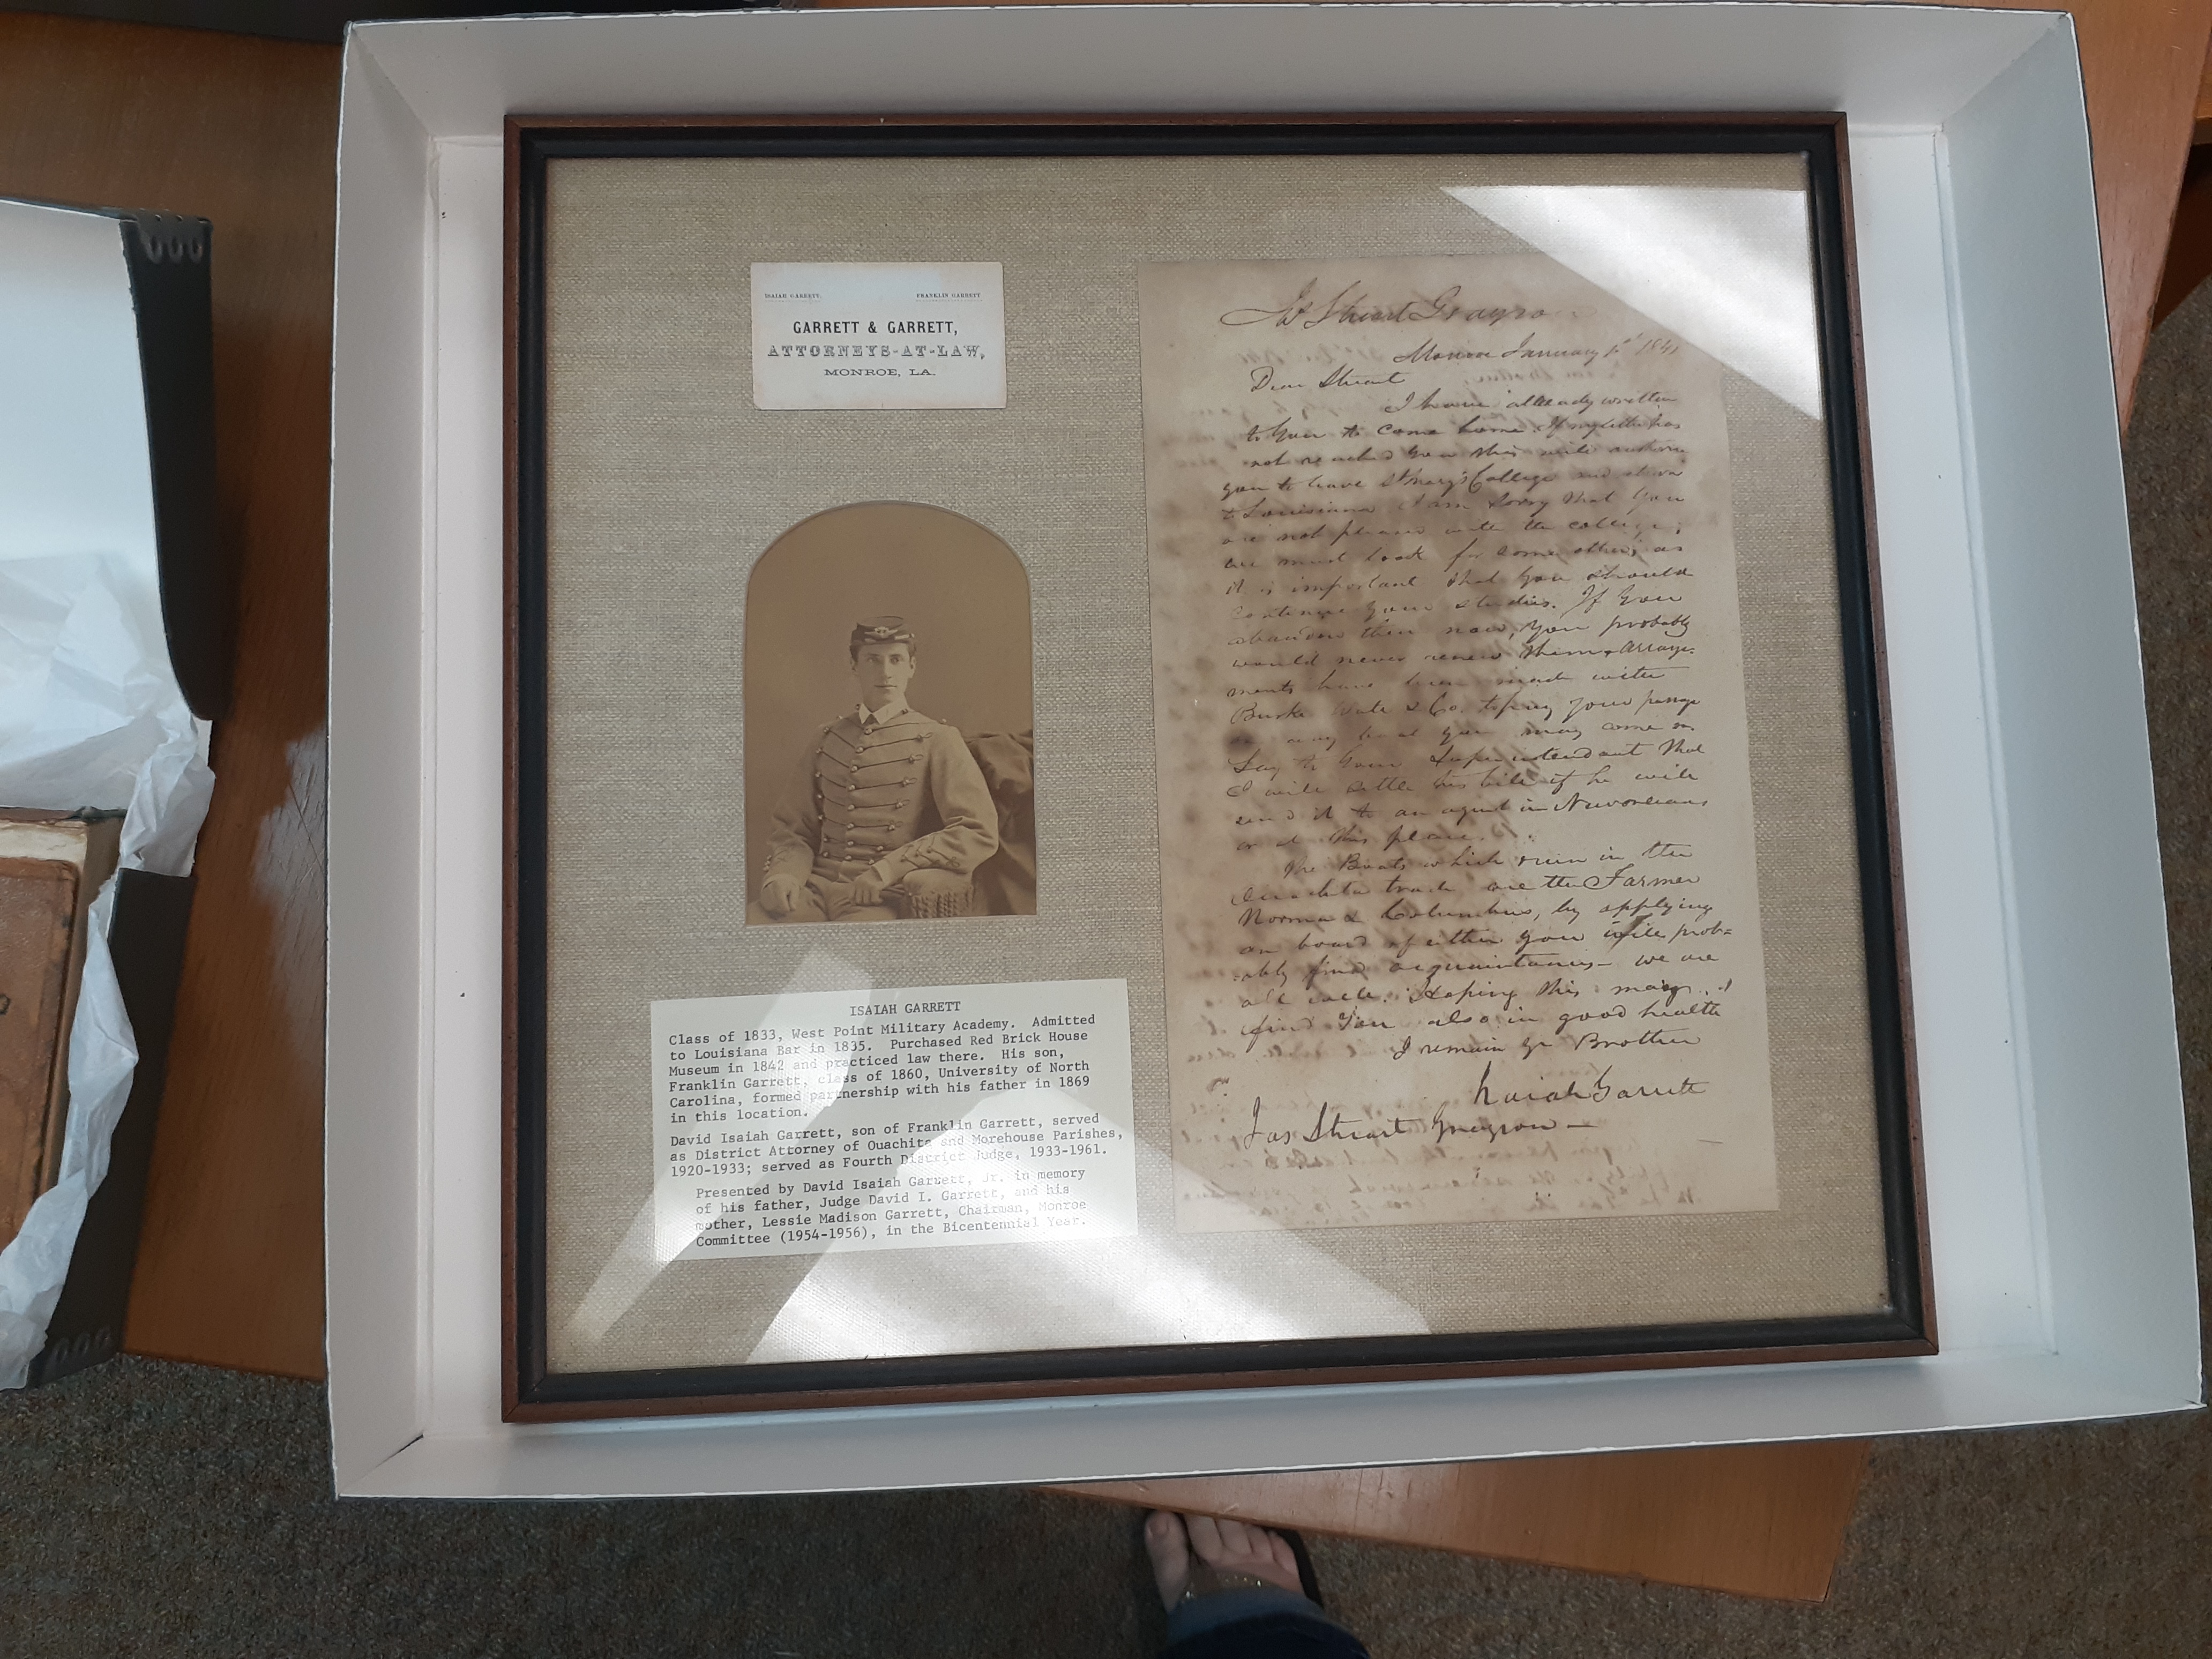 ISAIAH GARRETT. FRANKLIN GARRETT
GARRETT & GARRETT,
ATTORNEYS-AT-LAW,
MONROE, LA.
ISAIAH GARRETT
Class of 1833, West Point Military Academy. Admitted
to Louisiana Bar in 1835. Purchased Red Brick House
Museum in 1842 and practiced law there. His son,
Franklin Garrett, class of 1860, University of North
Carolina, formed partnership with his father in 1869
in this location.
David Isaiah Garrett, son of Franklin Garrett, served
as District Attorney of Ouachita and Morehouse Parishes,
1920-1933; served as Fourth District Judge, 1933-1961.
Presented by David Isaiah Garrett, Jr. in memory
of his father, Judge David I. Garrett, and his
mother, Lessie Madison Garrett, Chairman, Monroe
Committee (1954-1956), in the Bicentennial Year.
Stuart Grayson
Monroe January 1st 1841
Dear Stuart
I have already written
to you to come home. If my letter has
not reached you this will authorise
you to leave St Mary's College and
to Louisiana I am sorry that you
are not pleased with the college;
we must look for some other, as
it is important that you should
continue your studies. If you
abandon them now, you probably
would never renew them. Arrange-
ments have been made with
Burke & Co. to pay your passage
on any boat you may come on
Say to your Superintendant that
I will settle his bill if he will
send it to an agent in Neworleans
or at this place.
The Boats which run in the
Ouachita trade are the Farmer
Norma & Columbus, by applying
on board of either you will prob=
ably find acquaintances - we are
all well. Hoping this may
find you also in good health
I remain yr Brother
Isaiah Garrett
Jas Stuart Grayson -